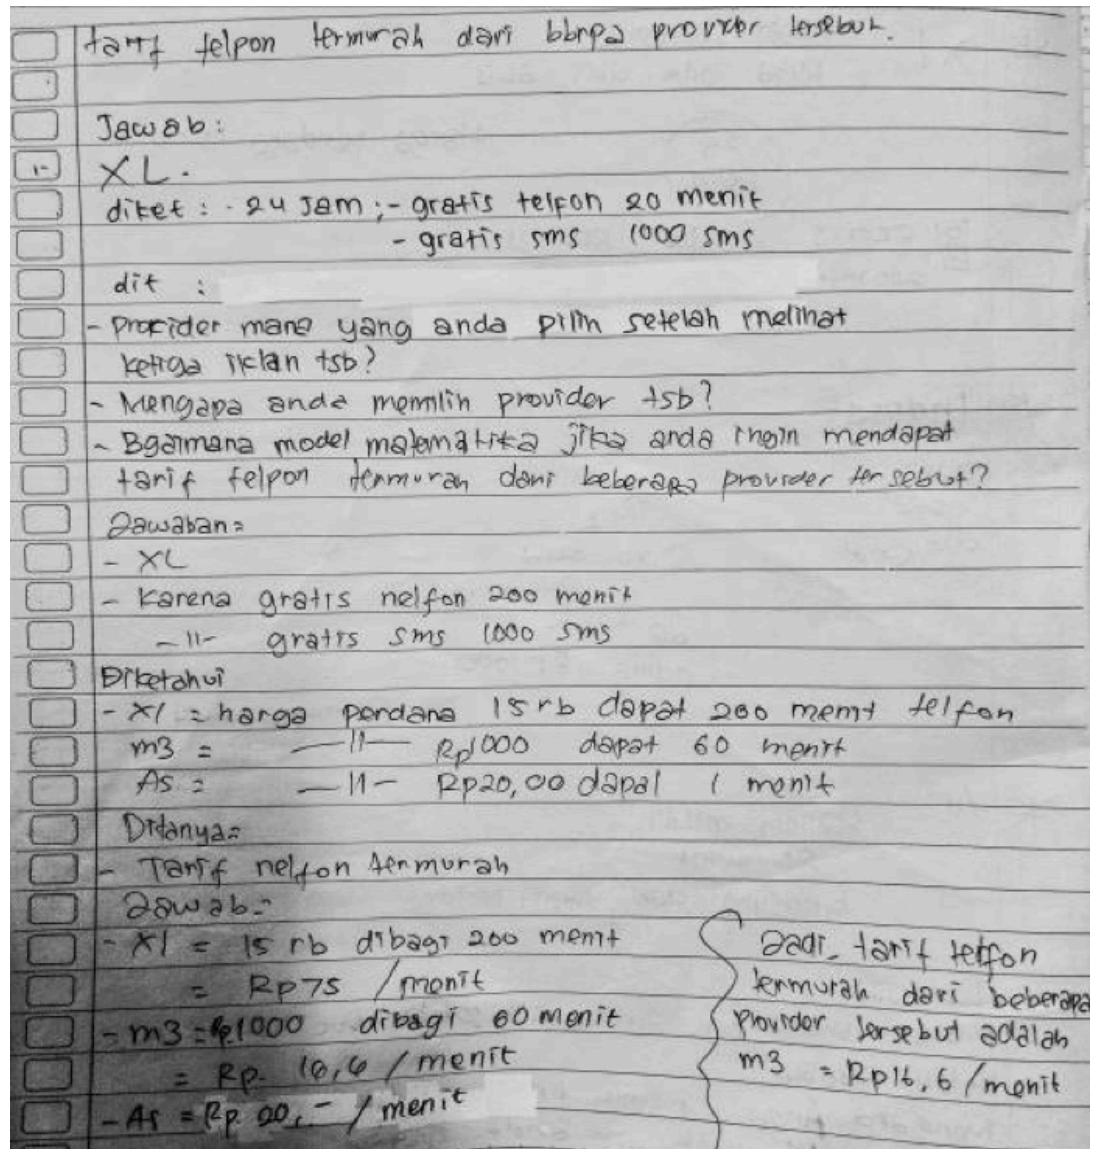 tarif telpon termurah dari bbrpa provider tersebut.
Jawab:
1-
XL.
diket : - 24 Jam ; - gratis telfon 20 menit
- gratis sms 1000 sms
dit :
- Procider mana yang anda pilih setelah melihat
ketiga iklan tsb?
- Mengapa anda memilih provider tsb?
- Bgaimana model matematika jika anda ingin mendapat
tarif telpon termurah dari beberapa provider tersebut?
Jawaban=
- XL
- Karena gratis nelfon 200 menit
-11- gratis sms 1000 sms
Diketahui
- Xl = harga perdana 15 rb dapat 200 menit telfon
m3 = —11— Rp1000 dapat 60 menit
As = —11- Rp20,00 dapat 1 menit
Ditanya=
- Tarif nelfon termurah
Jawab=
- Xl = 15 rb dibagi 200 menit
= Rp75 /menit
- m3 = Rp1000 dibagi 60 menit
= Rp. 16,6 / menit
- As = Rp. 20,- / menit
Jadi, tarif telfon
termurah dari beberapa
provider tersebut adalah
m3 = Rp16,6 /menit